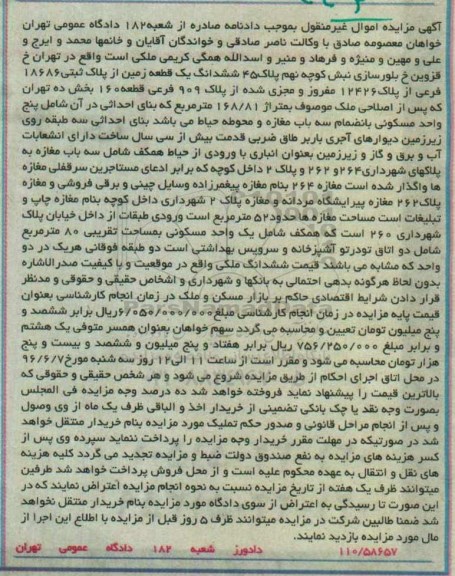 آگهی مزایده اموال غیرمنقول بموجب دادنامه صادره از شعبه۱۸۲ دادگاه عمومی تهران
خواهان معصومه صادق با وکالت ناصر صادقی و خواندگان آقایان و خانمها محمد و ایرج و
علی و مهین و منیژه و فرهاد و منیر و اسدالله همگی کریمی ملکی است واقع در تهران خ
قزوین خ بلورسازی نبش کوچه نهم پلاک۴۵ ششدانگ یک قطعه زمین از پلاک ثبتی۱۸۶۸۶
فرعی از پلاک۱۲۴۲۶ مفروز و مجزی شده از پلاک ۹۰۹ فرعی قطعه۱۶۰ بخش ده تهران
که پس از اصلاحی ملک موصوف بمتراژ ۱۶۸/۸۱ مترمربع که بنای احداثی در آن شامل پنج
واحد مسکونی بانضمام سه باب مغازه و محوطه حیاط می باشد بنای احداثی سه طبقه روی
زیرزمین دیوارهای آجری باربر طاق ضربی قدمت بیش از سی سال ساخت دارای انشعابات
آب و برق و گاز و زیرزمین بعنوان انباری با ورودی از حیاط همکف شامل سه باب مغازه به
پلاکهای شهرداری۲۶۴و ۲۶۲ و پلاک ۲ داخل کوچه که برابر ادعای مستاجرین سرقفلی مغازه
ها واگذار شده است مغازه ۲۶۴ بنام مغازه پیغمبرزاده وسایل چینی و برقی فروشی و مغازه
پلاک۲۶۲ مغازه پیرایشگاه مردانه و مغازه پلاک ۲ شهرداری داخل کوچه بنام مغازه چاپ و
تبلیغات است مساحت مغازه ها حدود۵۲ مترمربع است ورودی طبقات از داخل خیابان پلاک
شهرداری ۲۶۰ است که همکف شامل یک واحد مسکونی بمساحت تقریبی ۸۰ مترمربع
شامل دو اتاق تودرتو آشپزخانه و سرویس بهداشتی است دو طبقه فوقانی هریک در دو
واحد که مشابه می باشند قیمت ششدانگ ملکی واقع در موقعیت و با کیفیت صدرالاشاره
بدون لحاظ هرگونه بدهی احتمالی به بانکها و شهرداری و اشخاص حقیقی و حقوقی و مدنظر
قرار دادن شرایط اقتصادی حاکم بر بازار مسکن و ملک در زمان انجام کارشناسی بعنوان
قیمت پایه مزایده در زمان انجام کارشناسی مبلغ۶/۰۵۰/۰۰۰/۰۰۰ریال برابر ششصد و
پنج میلیون تومان تعیین و محاسبه می گردد سهم خواهان بعنوان همسر متوفی یک هشتم
و برابر مبلغ ۷۵۶/۲۵۰/۰۰۰ ریال برابر هفتاد و پنج میلیون و ششصد و بیست و پنج
هزار تومان محاسبه می شود و مقرر است از ساعت ۱۱ الی۱۲ روز سه شنبه مورخ۹۶/۶/۷
در محل اتاق اجرای احکام از طریق مزایده شروع می شود و هر شخص حقیقی و حقوقی که
بالاترین قیمت را پیشنهاد نماید فروخته خواهد شد ده درصد وجه مزایده فی المجلس
بصورت وجه نقد یا چک بانکی تضمینی از خریدار اخذ و الباقی ظرف یک ماه از وی وصول
و پس از انجام مراحل قانونی و صدور حکم تملیک مورد مزایده بنام خریدار منتقل خواهد
شد در صورتیکه در مهلت مقرر خریدار وجه مزایده را پرداخت ننماید سپرده وی پس از
کسر هزینه های مزایده به نفع صندوق دولت ضبط و مزایده تجدید می گردد کلیه هزینه
های نقل و انتقال به عهده محکوم علیه است و از محل فروش پرداخت خواهد شد طرفین
میتوانند ظرف یک هفته از تاریخ مزایده نسبت به نحوه انجام مزایده اعتراض نمایند که در
این صورت تا رسیدگی به اعتراض از سوی دادگاه مورد مزایده بنام خریدار منتقل نخواهد
شد ضمنا طالبین شرکت در مزایده میتوانند ظرف ۵ روز قبل از مزایده با اطلاع این اجرا از
مال مورد مزایده بازدید نمایند.
۱۱۰/۵۸۶۵۷ دادورز شعبه ۱۸۲ دادگاه عمومی تهران